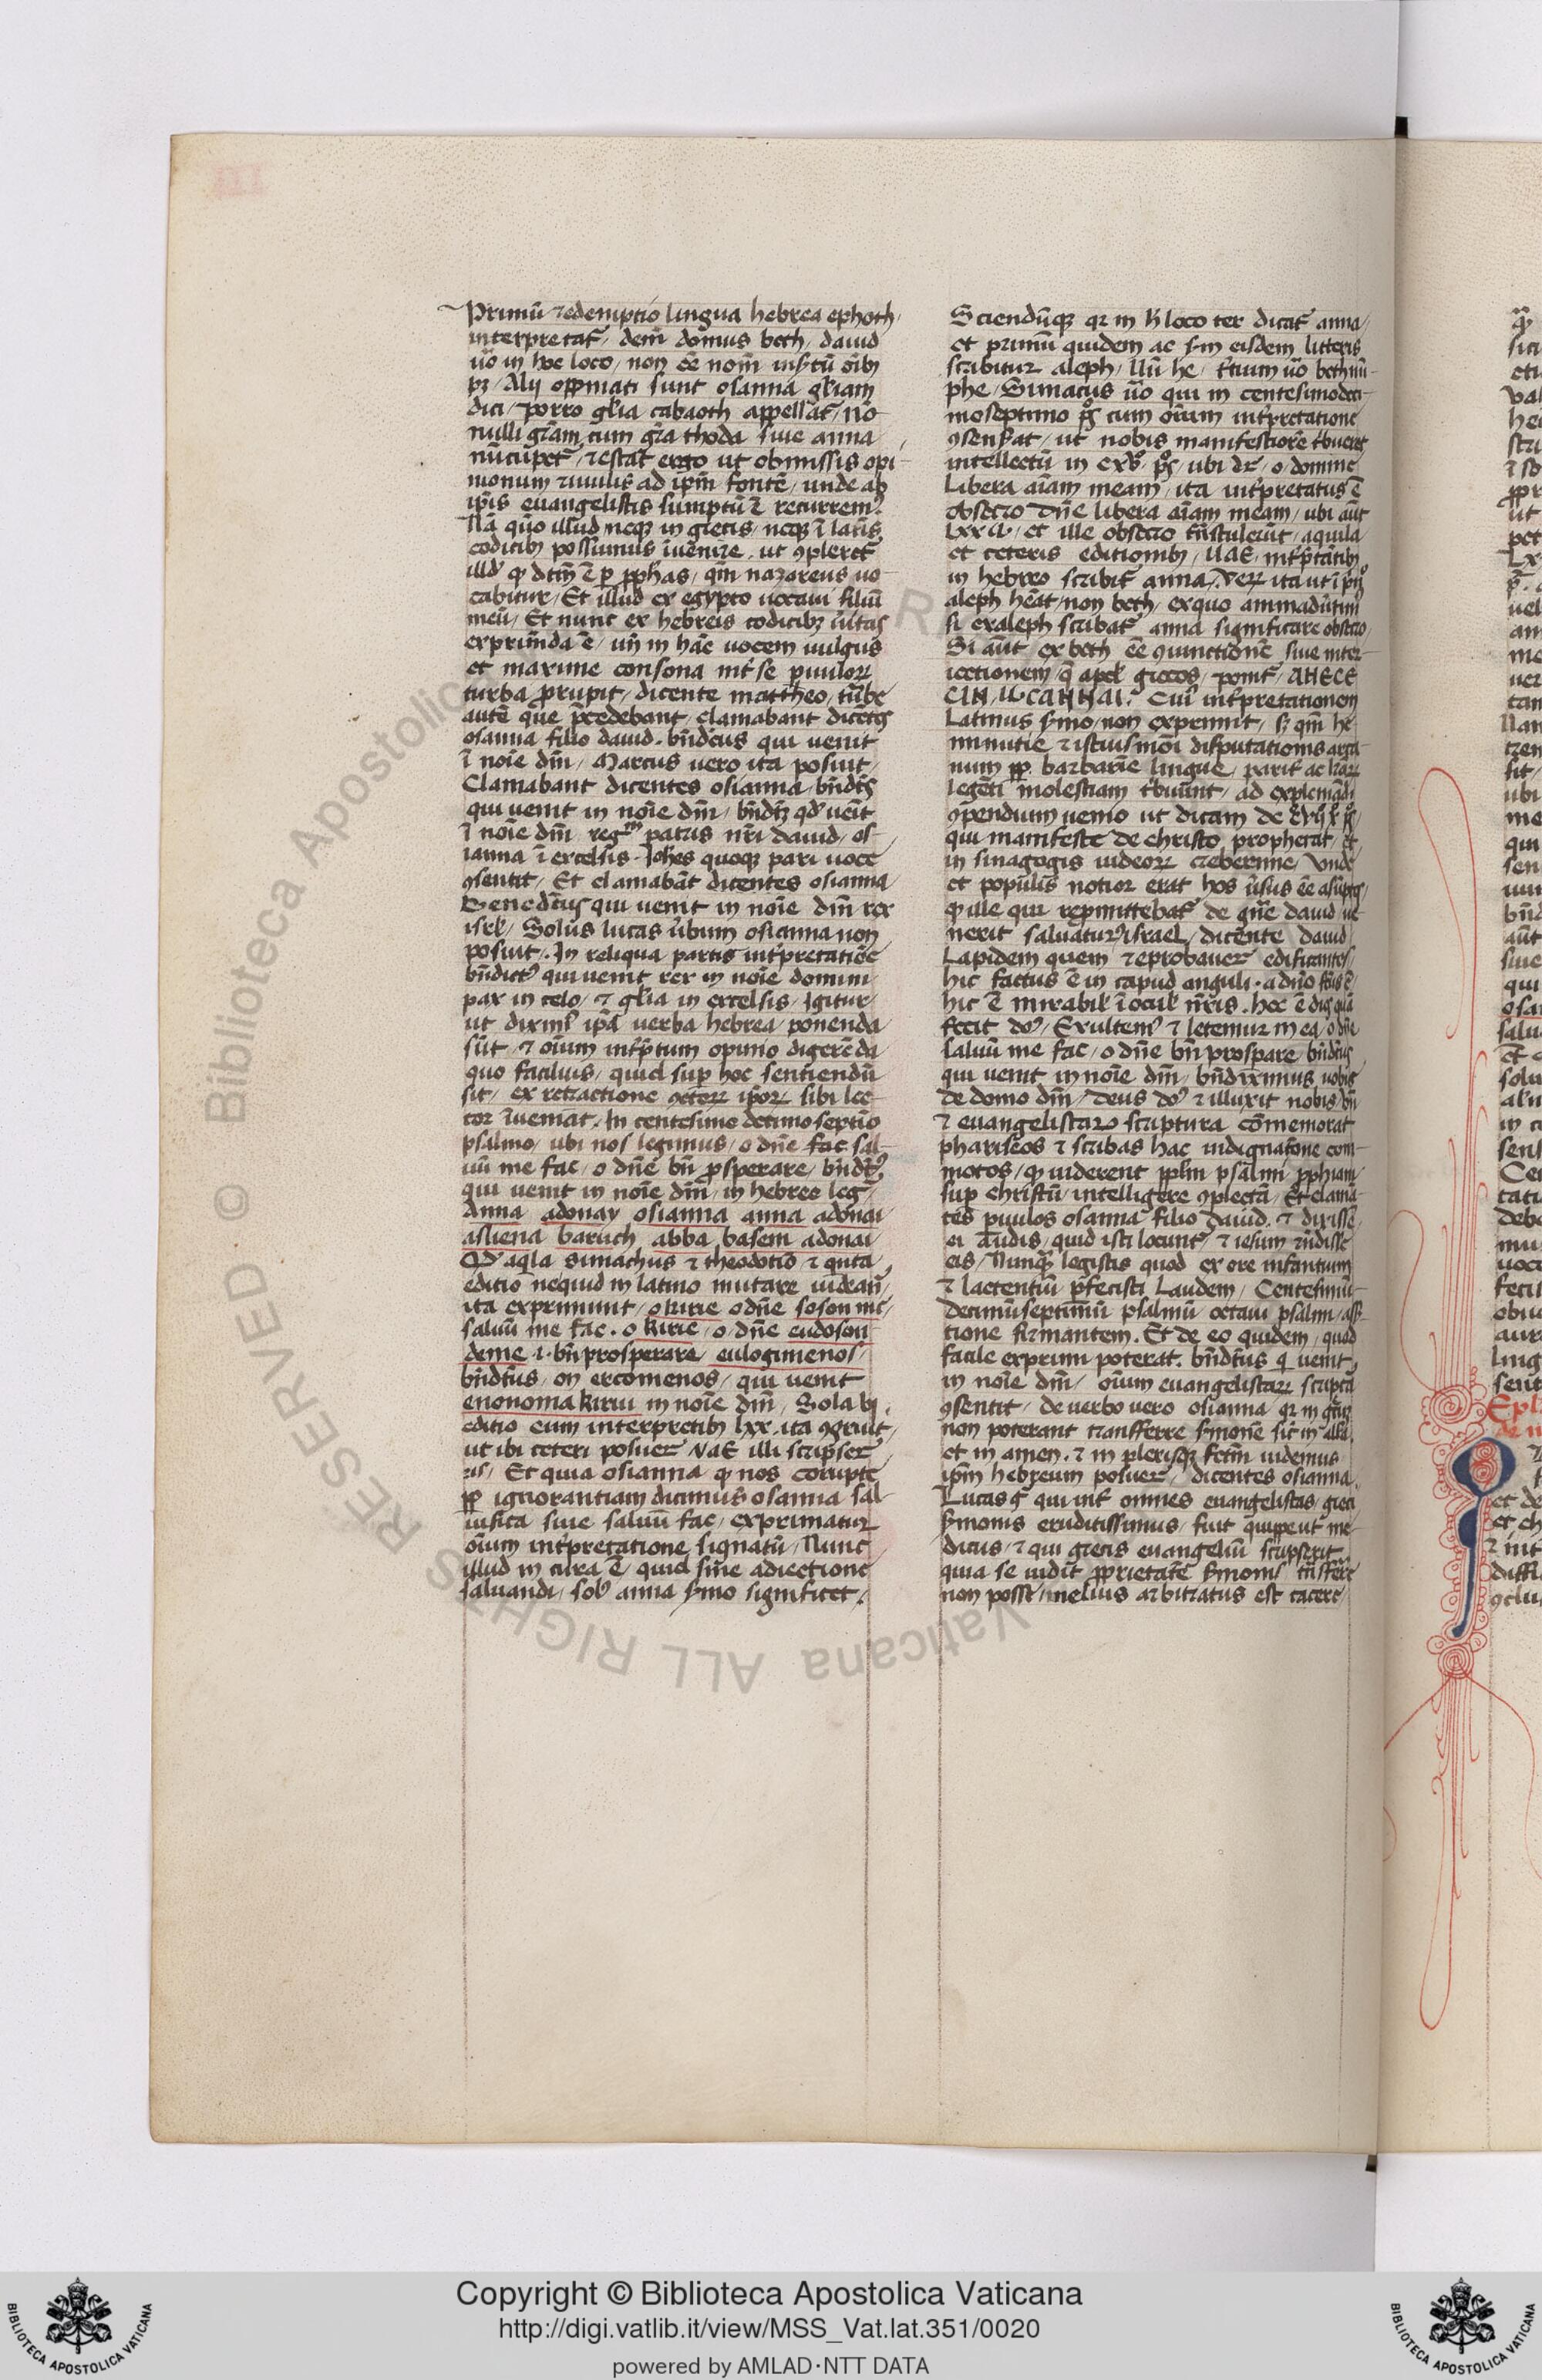 Primū redemptio lingua hebrea ephoth,
interpretat̄ / dem̄ domus beth / dauid
uō in hoc loco / non ēe nom̄ insʼtū oīb
pȝ / Alij opinati sunt osanna gl̄iam
dici / Porro gl̄ia cabaoth appellat̄ / nō
nulli grām cum gr̄a thoda siue anna /
nūcupet̄ / restat̄ ergo ut obmissis opi-
nionum riuulis ad ip̄m fontē / unde ab
ip̄is euangelistis sumptū ē recurrem᷒
Nā quō illud neqꝫ in grecis / neqꝫ ī latīs
codicibȝ possumus īuenire . ut ꝯpleret̄
illd̄ qđ dtm̄ ē ꝑ ꝓphās / qm̄ nazareus uo-
cabitur / Et illud ex egypto uocaui filiū
meū / Et nunc ex hebreis codicibȝ ūitas
exprim̄da ē / un̄ in hāc uocem uulgus
et maxime consona int̄ se puulorꝝ
turba ꝓrupit / dicente mattheo / tūbe
autē que p̄cedebant / clamabant dicētes
osanna filio dauid . bn̄dcus qui uenit
ī noīe dn̄i / Marcus uero ita posuit /
Clamabant dicentes osianna / bn̄dcs
qui uenit in noīe dn̄i / bn̄dcȝ qđ ueīt
ī noīe dn̄i regm̄ patris nr̄i dauid / os-
ianna ī excelsis . Joh̄es quoqꝫ pari uoce
ꝯsentit / Et clamabāt dicentes osianna /
Benedc̄us qui uenit in noīe dn̄i rex
isrl̄ / Solus lucas ūbum osianna non
posuit / In reliqua partis int̄pretatiōe
bn̄dict᷒ qui uenit rex in noīe domini
pax in celo / ⁊ gl̄ia in excelsis / Igitur /
ut dixim᷒ ip̄a uerba hebrea ponenda
sūt / ⁊ oīum int̄p̄tum opinio digerēda
quo facilius / quid suꝑ hoc sentiendū
sit / ex retractione ꝯctorꝝ ip̄orꝝ sibi lec-
tor īueniat . In centesimo decimo septīo
psalmo / ubi nos legimus / o dn̄e fac sal-
uū me fac / o dn̄e bn̄ ꝓsperare / bn̄dct᷒
qui uenit in noīe dn̄i / in hebreo leḡ
Anna adonay osianna anna adonai /
asliena baruch abba basem adonai /
Qđ aq̄la simachus ⁊ theodotio ⁊ qnta
editio nequid in latino mutare uideān̄
ita exprimunt / o kirie o dn̄e soson me /
saluū me fac . o kirie / o dn̄e eudoson
deme .i. bn̄ prosperare / eulogimenos /
bn̄dc̄us / on ercomenos / qui uenit
enonoma kiriu in noīe dn̄i / Sola vj.
editio cum interpretib lxx . ita ꝯgruit /
ut ibi ceteri posuerꝝ NAE illi scripser̄
ūs / Et quia osianna qđ nos corrupte
ꝓp̄ ignorantiam dicimus osanna sal-
uifica siue saluū fac / exprimatur
oīum int̄pretatione signatū / Nunc
illud in cura ē / quid sine adiectione
saluandi / solū anna s̄mo significet .
Sciendūqꝫ qꝛ in h̄ loco ter dicat̄ anna /
et primū quidem ac sc̄m eisdem litteris
scribitur aleph / nū he / t̄tium uō beth nū-
phe / Simacus uō qui in centesimodeci-
moseptimo pso cum oīum int̄pretatione
ꝯsenserat / ut nobis manifestiorē t̄bueret
intellectū in cxvo pso / ubi dꝛ / o domine
Libera aīam meam / ita int̄pretatus ē
obsecro dn̄e libera aīam meam / ubi aūt
Lxx ω / et ille obsecro tn̄stulerūt / aquila
et ceteris editionibȝ / NAE / int̄p̄tātibȝ
in hebreo scribit̄ anna / Verꝝ ita ut ī pn̄o
aleph heāt / non beth / ex quo animadūtim᷒
si ex aleph scribat̄ anna significare obsecro /
Si aūt ex beth ēe ꝯiunctionē siue inter-
iectionem / q̄ apud grecos / ponit̄ / AHECE
CIN / ωCANNAI . Cui᷒ int̄pretationem
Latinus s̄mo / non exprimit / sꝫ qm̄ he
minutie ⁊ istiusmōi disputationis arga-
num ꝓp̄ barbariē lingue / parit̄ ac lr̄arꝝ
legēti molestiam t̄buūnt / ad explicandi
ꝯpendium uenio ut dicam de cxvijo pso
qui manifeste de christo ꝓphetat / et
in sinagogis iudeorꝝ creberrime / Vnde
et populis notior erat hos ūsus ēe asūptos /
qđ ille qui repmittebat̄ de gn̄e dauid ue-
nerit saluatur᷒ israel / dicente dauid
Lapidem quem reprobauerꝝ edificantes /
hic factus ē in capud anguli . a dn̄o fc̄us ē /
hic ē mirabil̄ ī ocul̄ nr̄is . hec ē dies quā
fecit dn̄s / Exultem᷒ ⁊ letemur in ea / o dn̄e
saluū me fac / o dn̄e bn̄ prospare / bn̄dc̄us
qui uenit in noīe dn̄i / bn̄diximus uobis
de domo dn̄i / deus dn̄s ⁊ illuxit nobis / vn̄
⁊ euangelistarꝝ scriptura cōmemorat
phariseos ⁊ scribas hac indignatōne com-
motos / qđ uiderent pp̄lm psalmi ꝓph̄iam
suꝑ christū / intelligere ꝯplectā / Et clamā-
tes puulos osanna filio dauid . ⁊ dixisse
ei audis / quid isti locunt̄ / ⁊ iesum rn̄disse
eis / Nunqꝫ legistis quod ex ore infantium
⁊ lactentiū p̄fecisti Laudem / Centesimū-
decimūseptimū psalmū octaui psalmi / ass̄-
tione firmantem . Et de eo quidem / quod
facile exprimi poterat . bn̄dc̄us q̄ uenit
in noīe dn̄i / oīum euangelistarꝝ scripta
ꝯsentit / de verbo uero osianna qꝛ in gr̄co
non poterant transferre s̄monē sic in all̄a
et in amen . ⁊ in plerisqꝫ fc̄m uidemus
ip̄m hebreum posuerꝝ / dicentes osianna .
Lucas gͦ qui int̄ omnes euangelistas / greci
s̄monis eruditissimus / fuit quippe ut me-
dicus / ⁊ qui grecis euangeliū scripserit
quia se uidit ꝓprietatē s̄monis tn̄sferre
non posse / melius arbitratus est tacere /
Copyright © Biblioteca Apostolica Vaticana
http://digi.vatlib.it/view/MSS_Vat.lat.351/0020
powered by AMLAD·NTT DATA